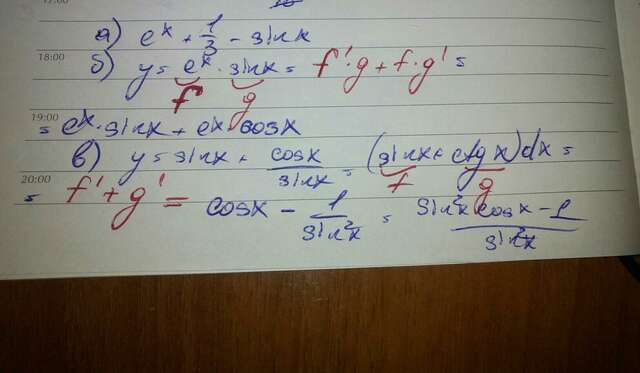 а) eˣ + 1/3 - sinx
18:00 б) y = eˣ · sinx = f' · g + f · g' =
f g
19:00 = eˣ · sinx + eˣ cosx
в) y = sinx + cosx/sinx = (sinx + ctg x)dx =
f g
20:00 = f' + g' = cosx - 1/sin²x = sin²x cosx - 1/sin²x